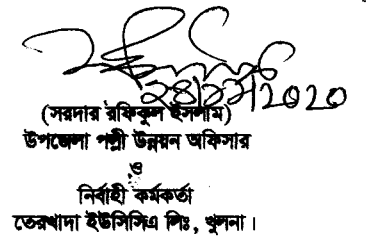 (সরদার রফিকুল ইসলাম)
উপজেলা পল্লী উন্নয়ন অফিসার
ও
নির্বাহী কর্মকর্তা
তেরখাদা ইউসিসিএ লিঃ, খুলনা।